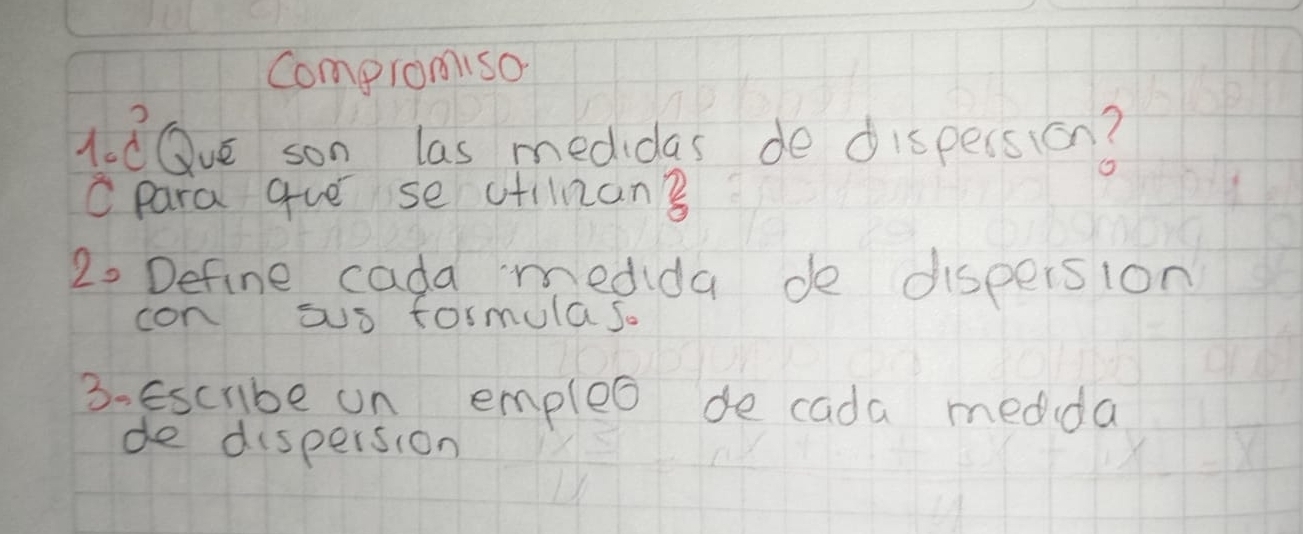 Compromiso
1. ¿Qué son las medidas de dispersion?
¿Para qué se utilizan?
2. Define cada medida de dispersion
con sus formulas.
3. Escribe un empleo de cada medida
de dispersion